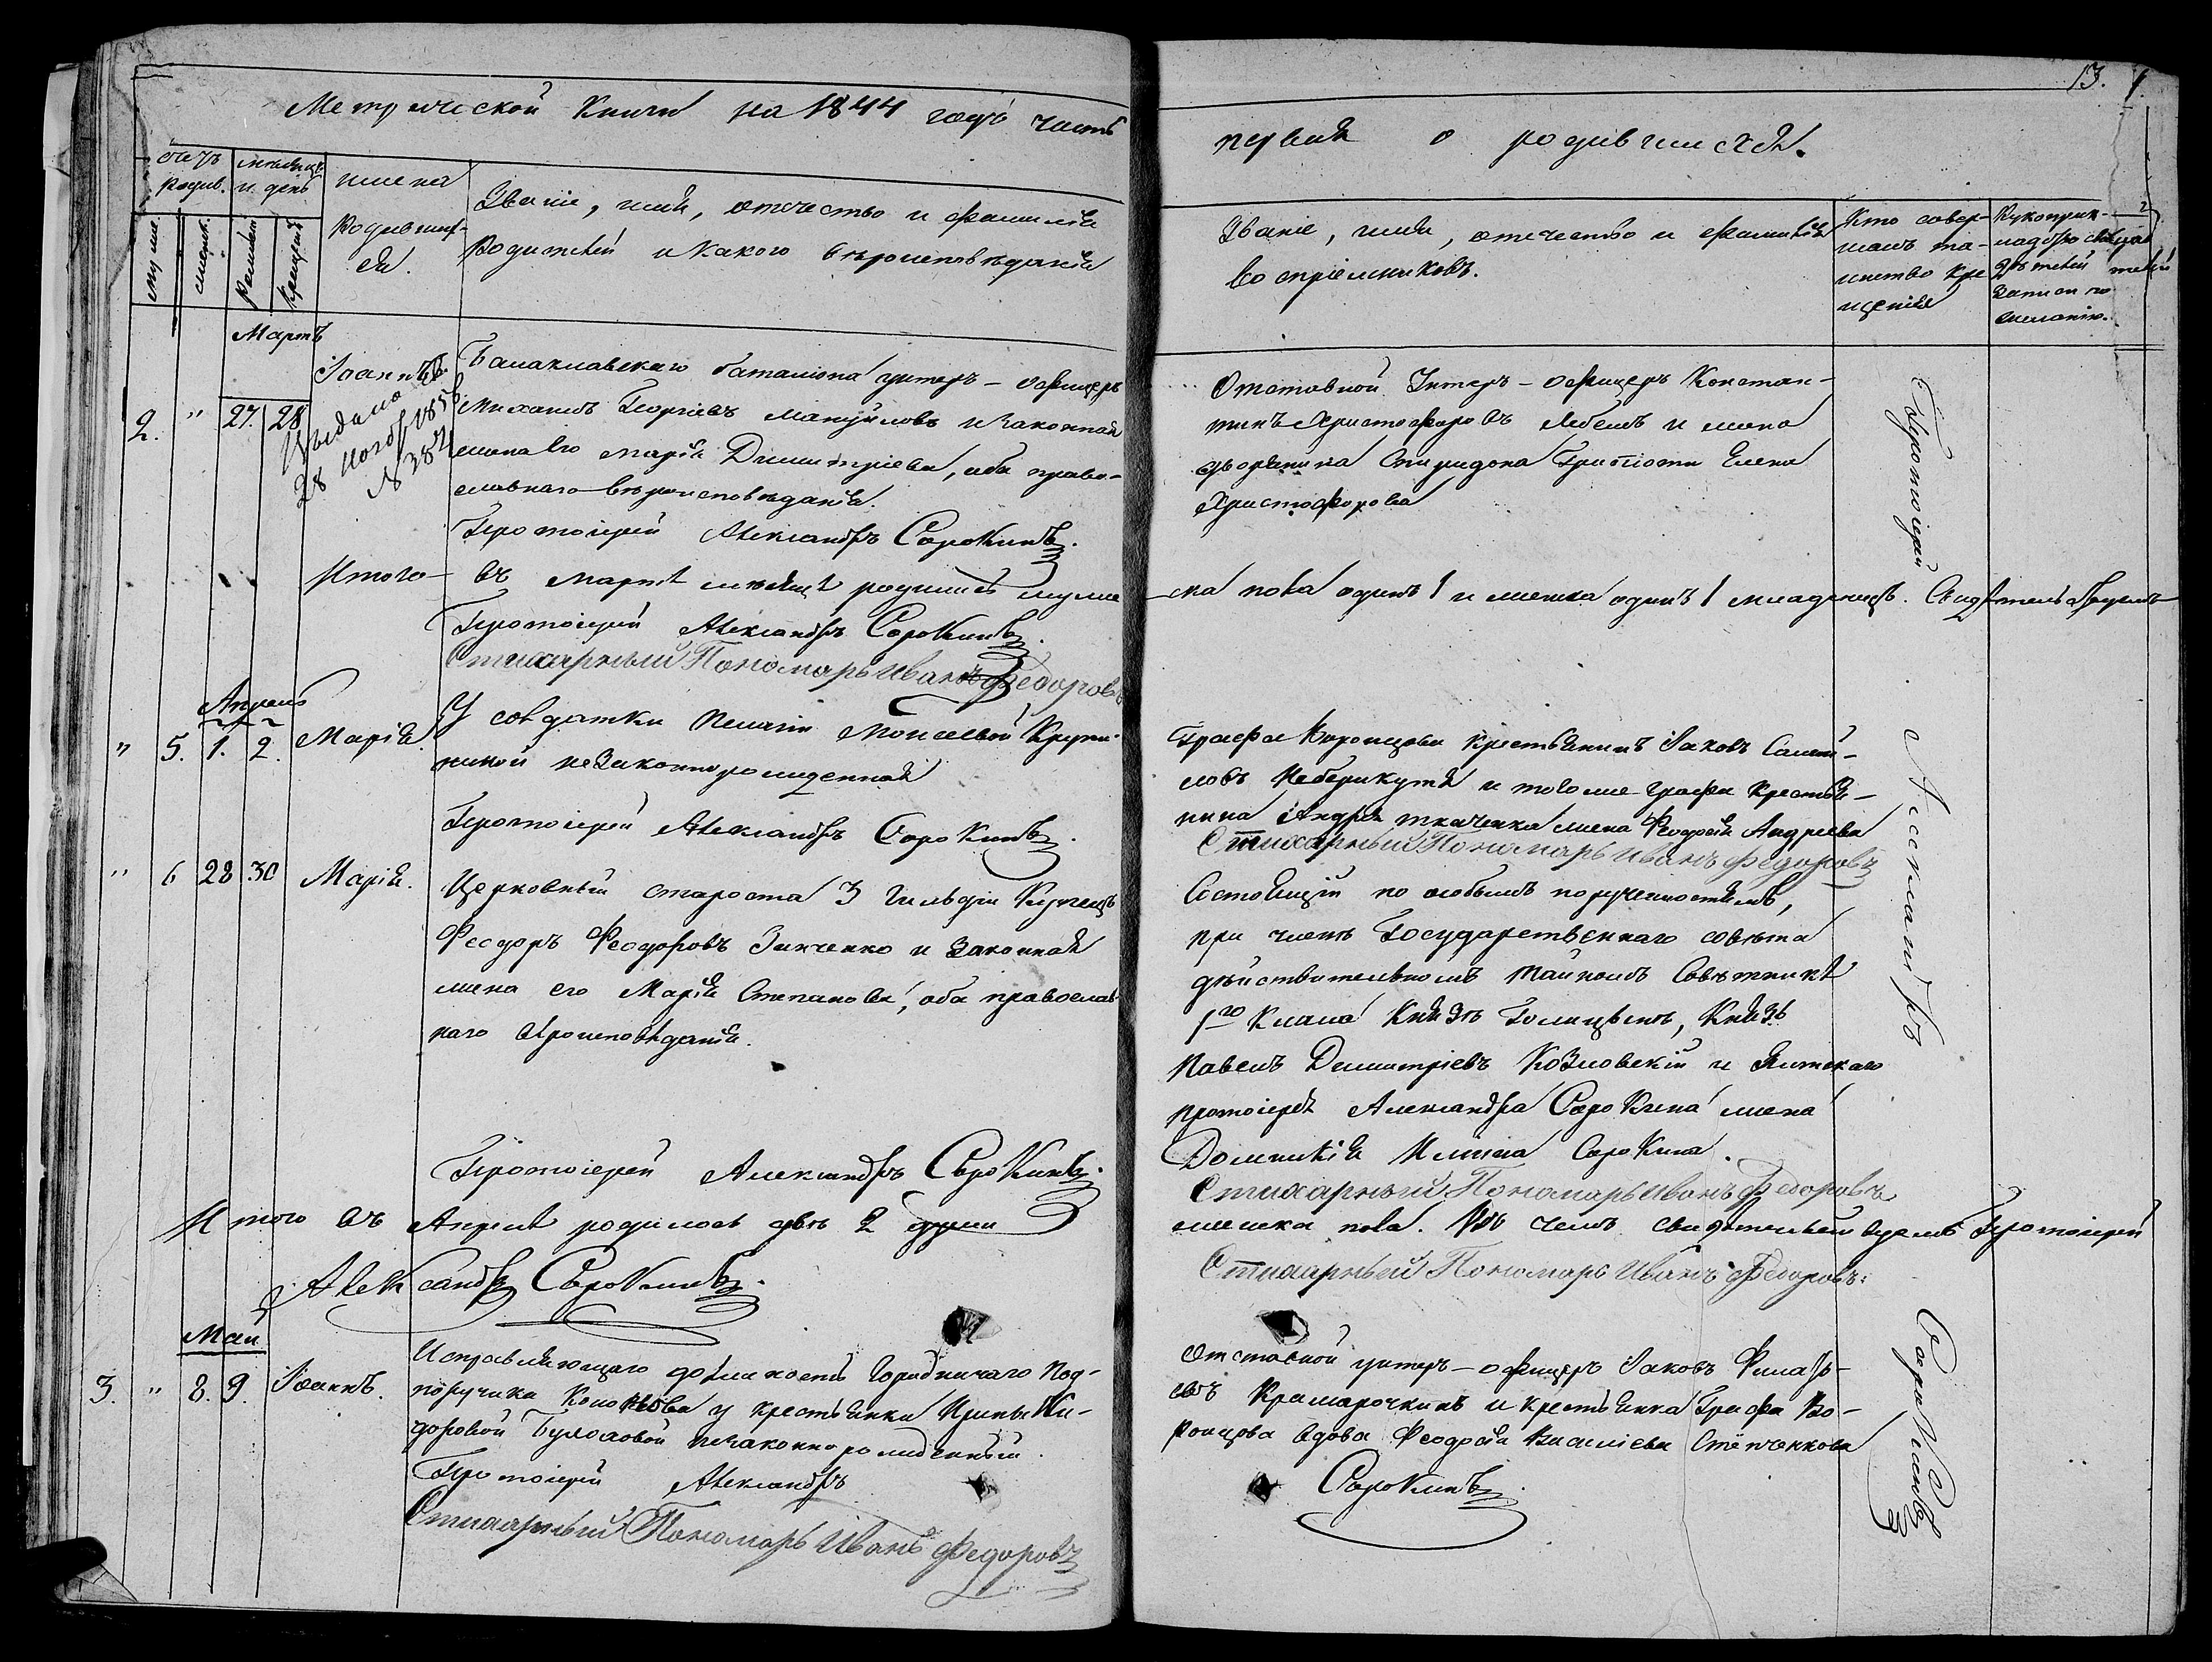 Метрической Книги на 1844 годъ часть
первая о родившихся.
13.
Счетъ родив.
мѣсяцъ и день
имена Родивших-ся.
Званіе, имя, отечество и фамилія
Родителей и какого вѣроисповѣданія
муж.
женск.
Рожденія
Крещенія
Званіе, имя, отечество и фамилія
воспріемниковъ.
Кто совер-
шалъ та-
инство кре
щенія
Рукоприк-
ладство свидѣ-
телей
записи по
желанію.
Мартъ
2. " 27. 28
Іоаннъ
Выдано
28 Нояб. 1858
№ 382
Балаклавскаго баталіона унтеръ-офицеръ
Михаилъ Георгіевъ Мануйловъ и законная
жена его Марія Димитріева, оба право-
славнаго вѣроисповѣданія.
Протоіерей Александръ Сорокинъ.
Отставной Унтеръ-офицеръ Констан-
тинъ Христофоровъ и жена
дворянина Спиридона Елена
Христофорова
Итого въ мартѣ мѣсяцѣ родилось муже
ска пола одинъ 1 и женска одинъ 1 младенецъ.
Протоіерей Александръ Сорокинъ.
Стихарный Пономарь Иванъ Федоровъ
Апрель
" 5. 1. 2. Марія.
У солдатки Пелагіи Моисеевой
незаконнорожденная
Протоіерей Александръ Сорокинъ.
Графа Воронцова крестьянинъ Іаковъ Самой-
ловъ и того же графа крестья-
нина Андрея Ткаченка жена Феодосія Андреева
Стихарный Пономарь Иванъ Федоровъ
" 6 28 30 Марія.
Церковный староста 3 гильдіи Купецъ
Феодоръ Феодоровъ Зинченко и законная
жена его Марія Степанова, оба православ-
наго вѣроисповѣданія.
Протоіерей Александръ Сорокинъ.
Состоящій по особымъ порученностямъ,
при членѣ Государственнаго совѣта
дѣйствительномъ тайномъ Совѣтникѣ
1го Класа Князѣ Голицынѣ, Князь
Павелъ Димитріевъ Козловскій и Ялтскаго
протоіерея Александра Сорокина жена
Домникія Ильина Сорокина.
Стихарный Пономарь Иванъ Федоровъ
Итого въ Апрелѣ родилось двѣ 2 души
женска пола. Въ чемъ Протоіерей
Александръ Сорокинъ.
Стихарный Пономарь Иванъ Федоровъ.
Май
3. " 8. 9. Іоаннъ.
Исправляющаго должность Городничаго Под-
поручика у крестьянки Ирины
незаконнорожденный.
Протоіерей Александръ Сорокинъ.
Стихарный Пономарь Иванъ Федоровъ
Отставной унтеръ-офицеръ Іаковъ
Крамарочкинъ и крестьянка Графа Во-
ронцова вдова Феодосія Василіева
Протоіерей
Александръ
Сорокинъ